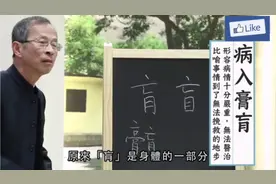 Like
病入膏肓
形容病情十分嚴重，無法醫治
比喻事情到了無法挽救的地步
盲 肓
膏
原來「肓」是身體的一部分